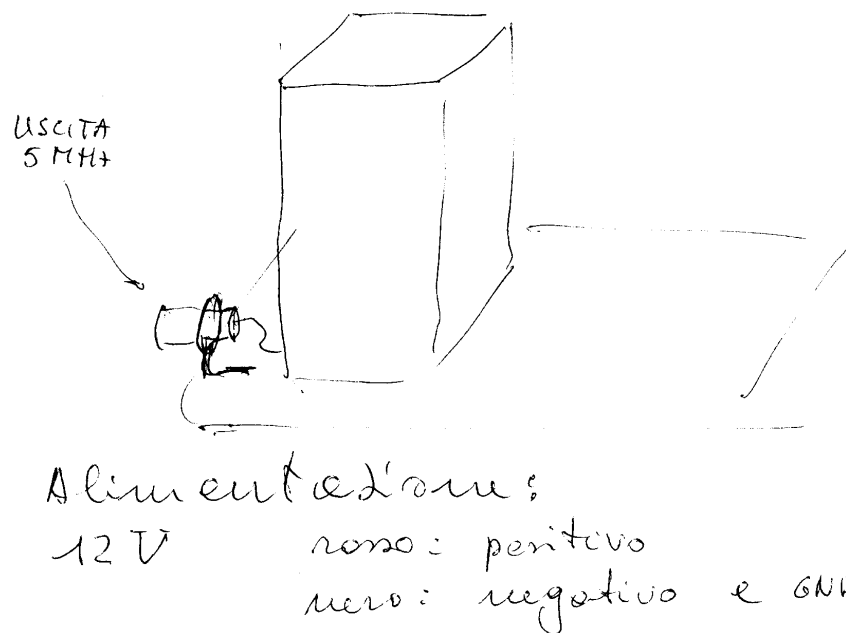 USCITA
5 MHz
Alimentazione:
12 V rosso: positivo
nero: negativo e GN